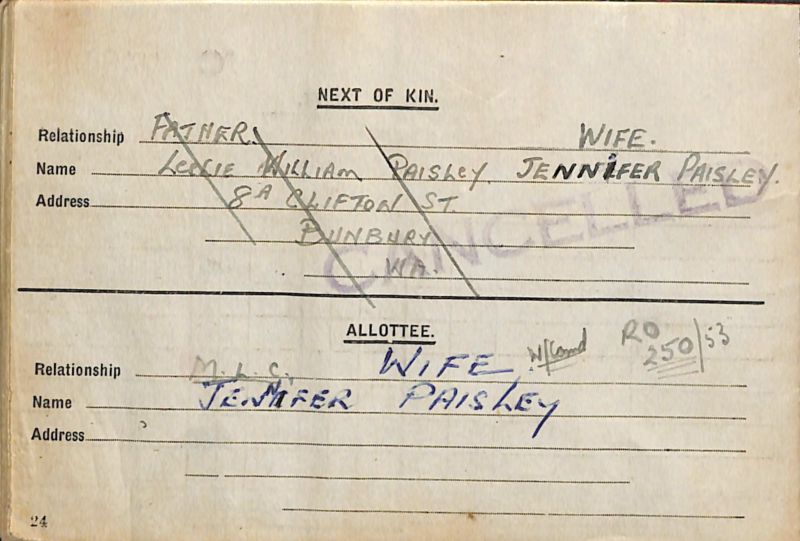 NEXT OF KIN.
Relationship FATHER. WIFE.
Name LESLIE WILLIAM PAISLEY. JENNIFER PAISLEY.
Address 8A CLIFTON ST.
BUNBURY
WA.
CANCELLED
ALLOTTEE.
Relationship M.L.C. WIFE. RO
250/53
Name JENNIFER PAISLEY
Address
24